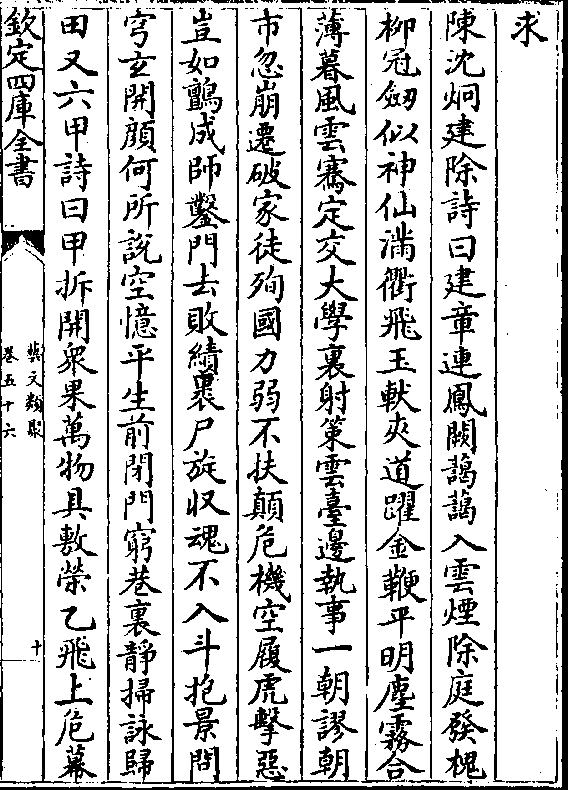 求
陳沈炯建除詩曰建章連鳳闕藹藹入雲煙除庭發槐
柳冠劒似神仙滿衢飛玉軑夾道躍金鞭平明塵霧合
薄暮風雲騫定交大學裏射策雲臺邊執事一朝謬朝
市忽崩遷破家徒殉國力弱不扶顛危機空履虎擊惡
豈如鸇成師鑿門去敗績褁尸旋収魂不入斗抱景問
穹玄開顔何所説空憶平生前閉門窮巷裏靜掃詠歸
田又六甲詩曰甲拆開衆果萬物具敷榮乙飛上危幕
欽定四庫全書
藝文類聚
卷五十六
十